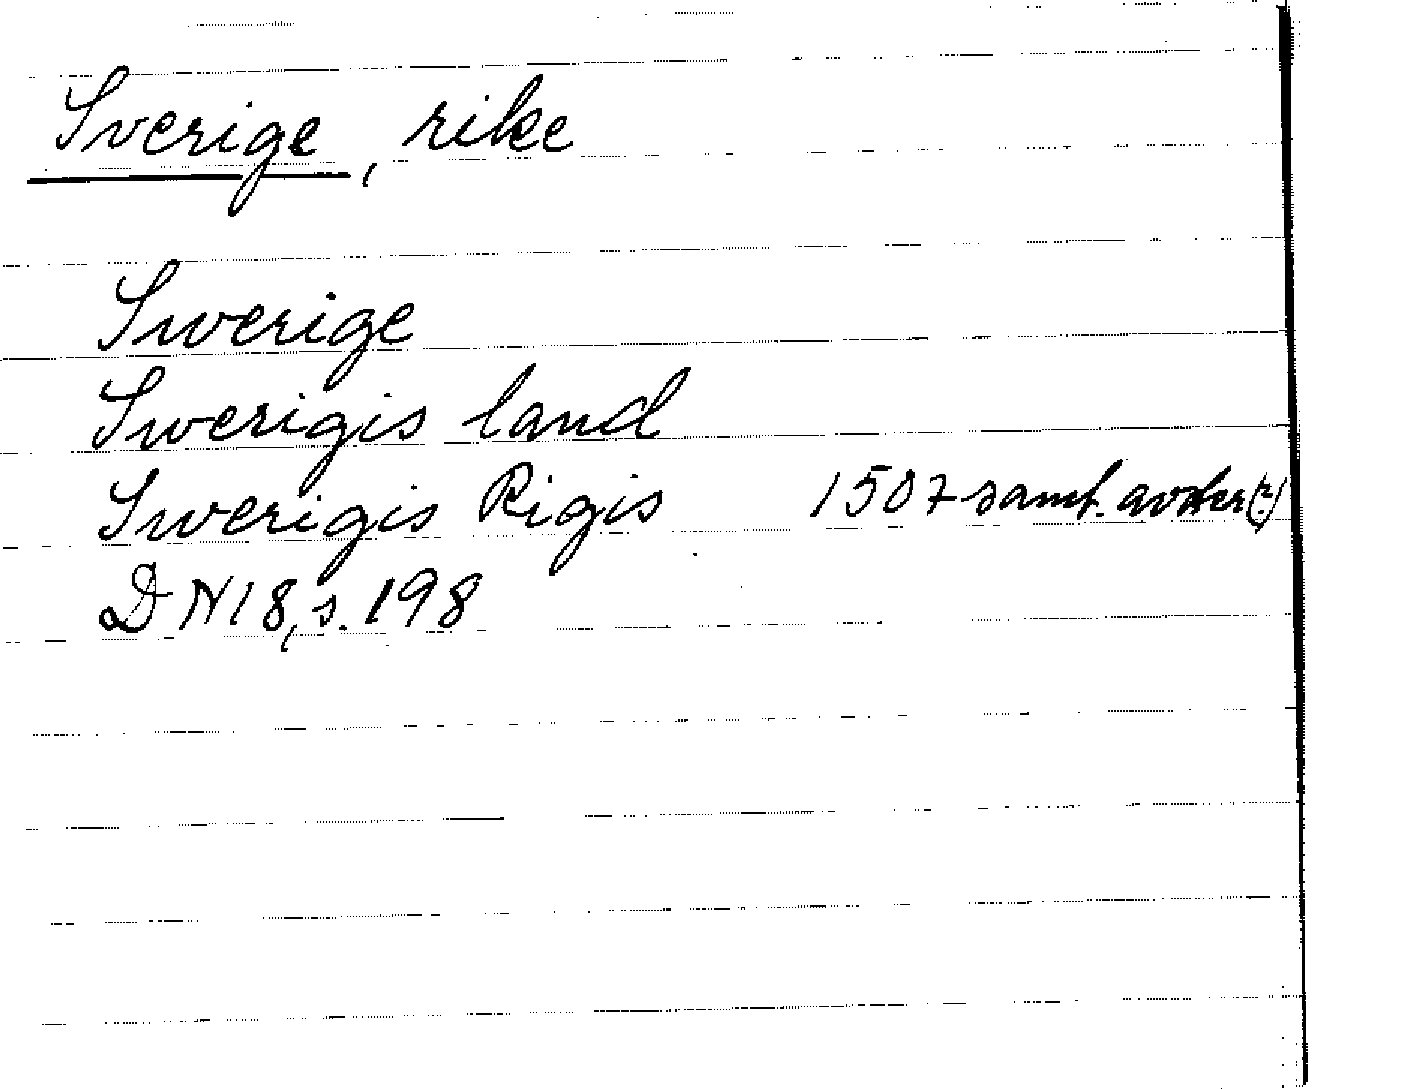 Sverige, rike
Swerige
Swerigis land
Swerigis Rigis 1507 samt. avskr(?)
DN18, s. 198